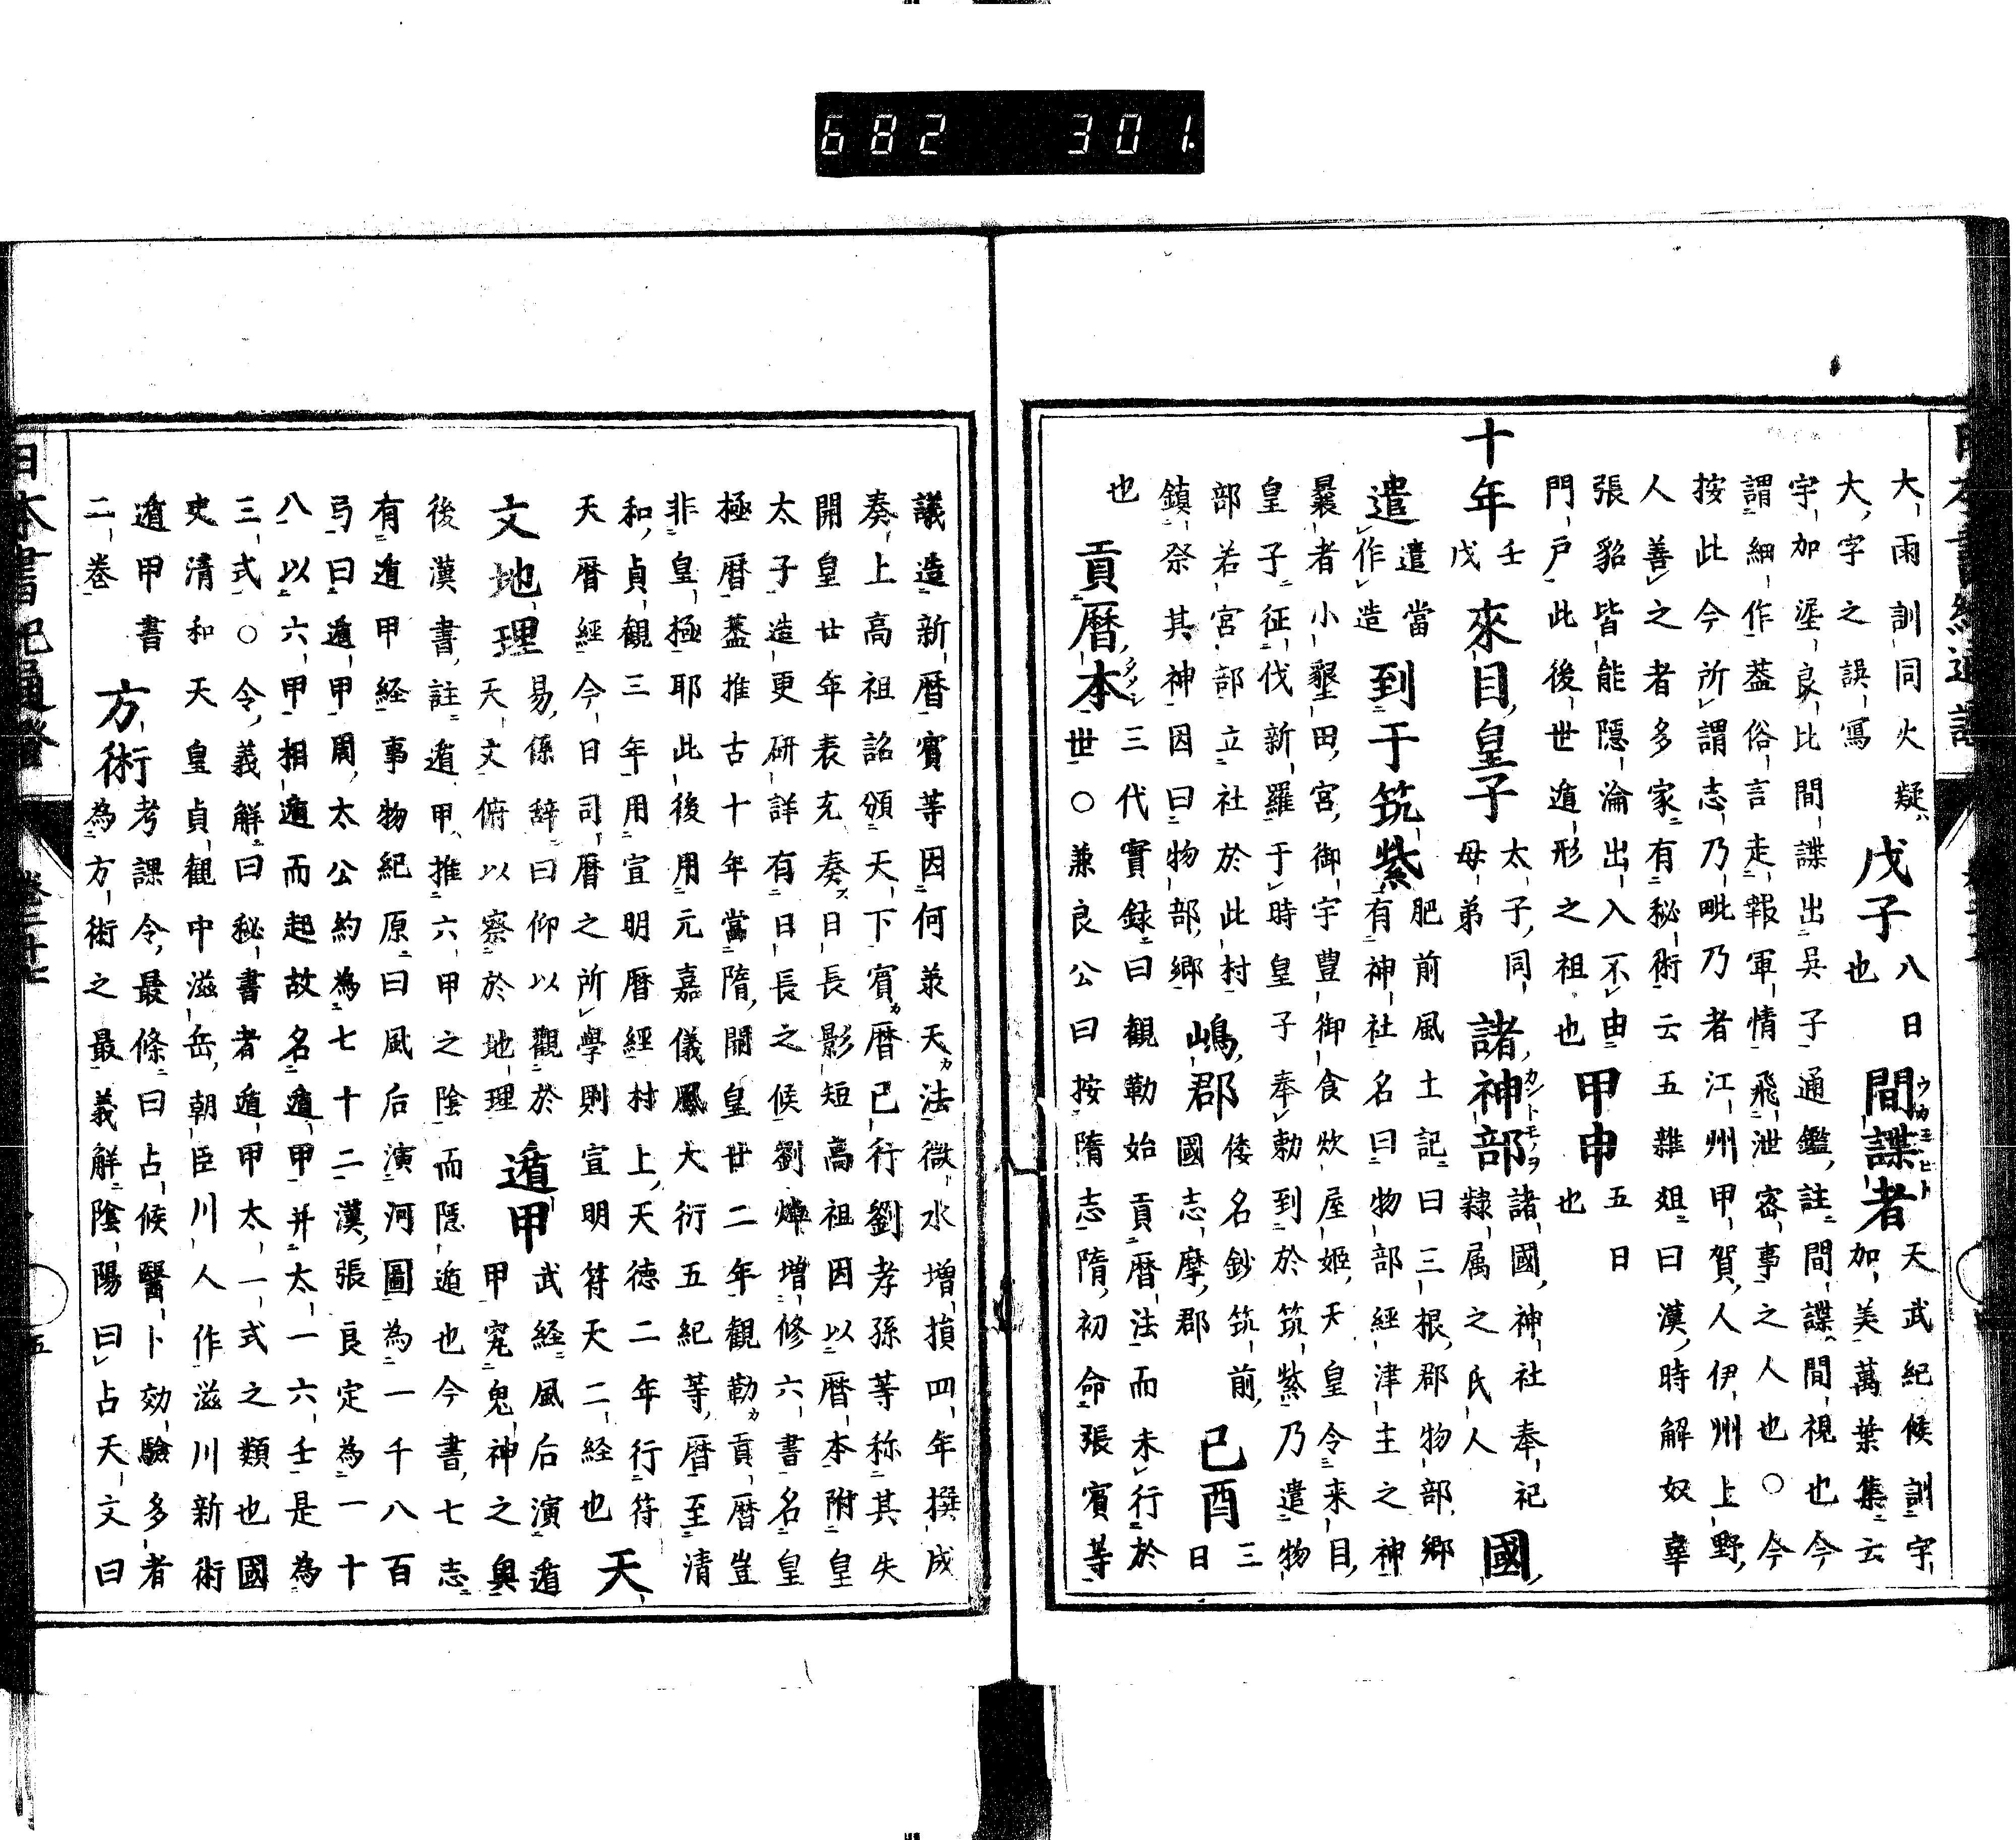 大雨訓同火疑
大字之誤寫
戊子
八日
也
間諜者
ウカミヒト
天武紀候訓字
加美萬葉集云
比間諜出吳子通鑑註間諜間視也今
謂細作蓋俗言走報軍情飛泄密事之人也○今
按此今所謂志乃毗乃者江州甲賀人伊州上野
人善之者多家有秘術云五雜俎曰漢時解奴辜
張貂皆能隱淪出入不由
門戸此後世遁形之祖也
甲申
五日
也
十年
壬
戌
來目皇子
太子同
母弟
諸神部
カントモノヲ
諸國神社奉祀
隷属之氏人
國
遣
遣當
作造
到于筑紫
肥前風土記曰三根郡物部郷
有神社名曰物部經津主之神
曩者小墾田宮御宇豊御食炊屋姫天皇令来目
皇子征伐新羅于時皇子奉勅到於筑紫乃遣物
部若宮部立社於此村
鎮祭其神因曰物部郷
嶋郡
倭名鈔筑前
國志摩郡
己酉
三
日
也
貢暦本
三代實録曰觀勒始貢暦法而未行於
世○兼良公曰按隋志隋初命張賓等
議造新暦賓等因何羕天法微水増損四年撰成
奏上高祖詔頒天下賓暦已行劉孝孫等称其失
開皇廿年表充奏日長影短高祖因以暦本附皇
太子造更研詳有日長之候劉焯増修六書名皇
極暦蓋推古十年當隋開皇廿二年觀勒貢暦豈
非皇極耶此後用元嘉儀鳳大衍五紀等暦至清
和貞觀三年用宣明暦經村上天徳二年行符
天暦經今日司暦之所學則宣明符天二経也
天
文地理
易係辞曰仰以觀於
天文俯以察於地理
遁甲
武経風后演遁
甲究鬼神之奥
後漢書註遁甲推六甲之陰而隠遁也今書七志
有遁甲経事物紀原曰風后演河圖為一千八百
弓曰遁甲周太公約為七十二漢張良定為一十
八以六甲相遁而起故名遁甲并太一六壬是為
三式○令義解曰秘書者遁甲太一式之類也國
史清和天皇貞觀中滋岳朝臣川人作滋川新術
遁甲書
二巻
方術
考課令最條曰占候醫卜効驗多者
為方術之最義解陰陽曰占天文曰
日本書紀通證
巻二十七
五
682 301.